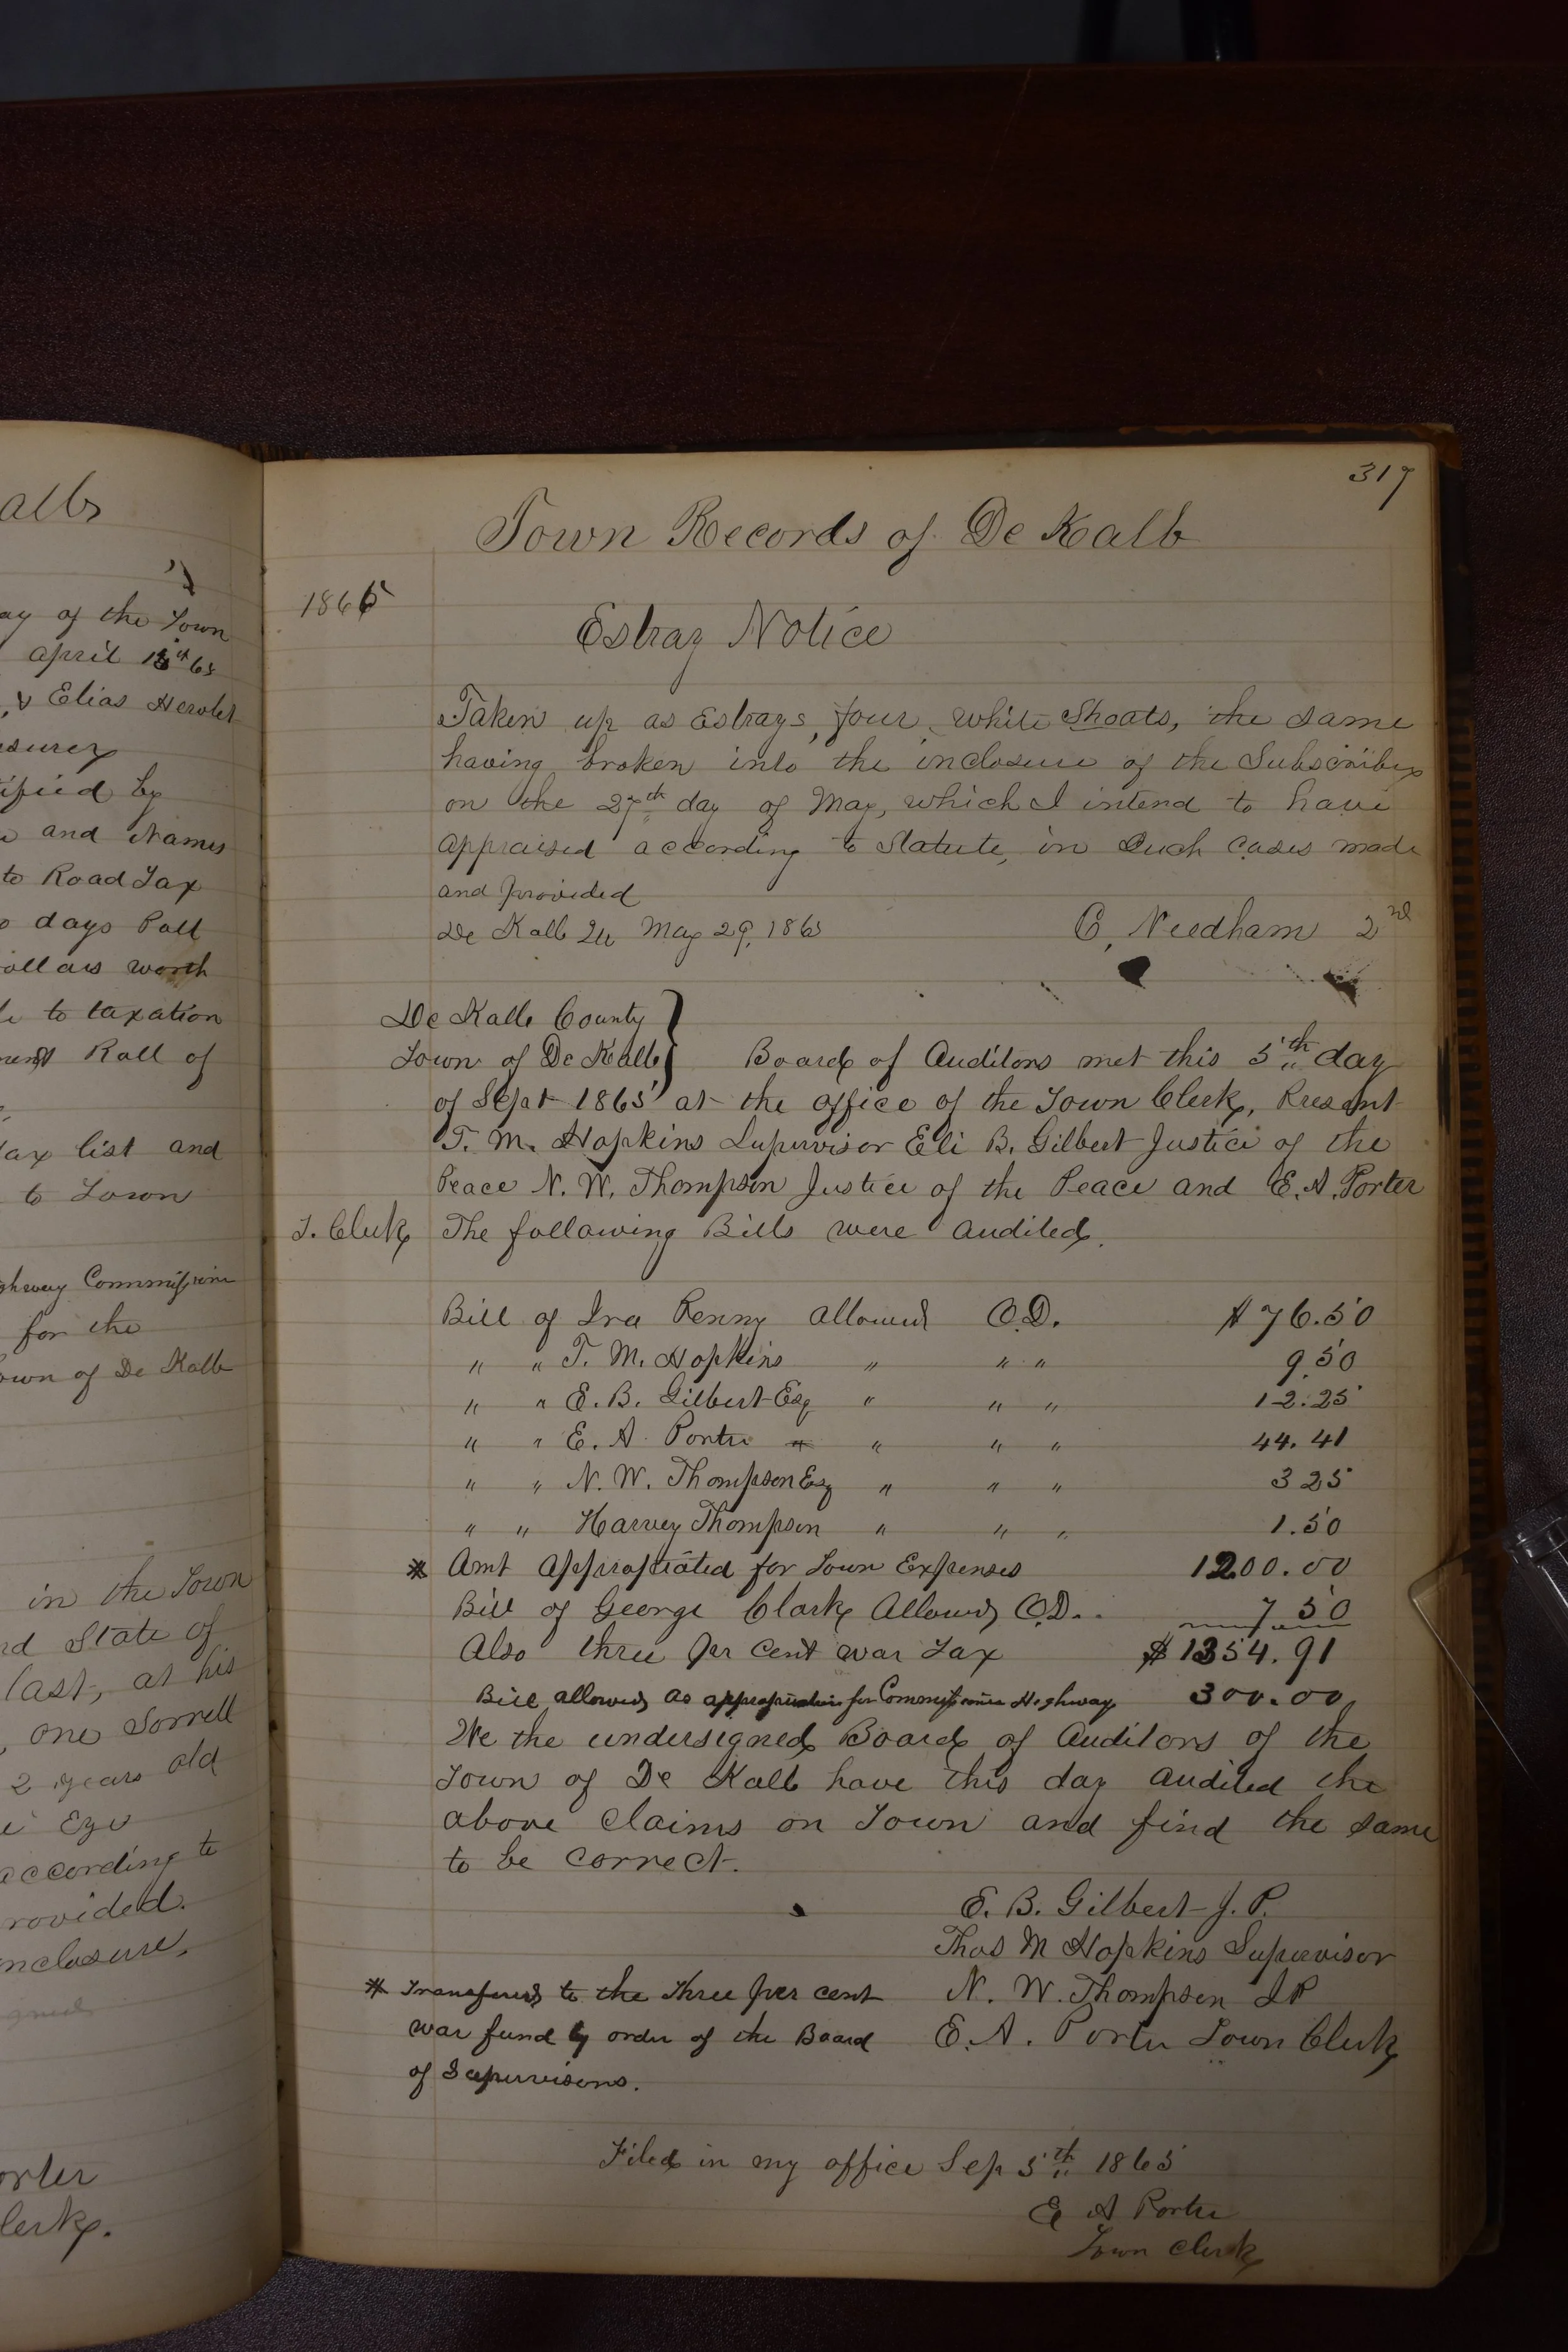 alb
ay of the Town
april 18th 65
, & Elias Hewlet
surer
ified by
and Names
to Road Tax
days Poll
ollars worth
to taxation
ment Roll of
ax list and
to Town
ghway Commissioner
for the
own of De Kalb
in the Town
nd State of
last, at his
, one Sorrell
2 years old
Eye
according to
rovided.
nclosure,
orter
lerk.
317
Town Records of De Kalb
1865
Estray Notice
Taken up as Estrays, four white Shoats, the same
having broken into the inclosure of the Subscriber
on the 27th day of May, which I intend to have
appraised according to Statute, in Such Cases made
and provided
De Kalb Ill May 29, 1865
C. Needham 2nd
De Kalb County
Town of De Kalb } Board of Auditors met this 5th day
of Sept 1865 at the office of the Town Clerk, Present
T. M. Hopkins Supervisor Eli B. Gilbert Justice of the
Peace N. W. Thompson Justice of the Peace and E. A. Porter
T. Clerk The following Bills were audited.
Bill of Ira Penny allowed O.D. $76.50
" " T. M. Hopkins " " " 9.50
" " E. B. Gilbert Esq " " " 12.25
" " E. A. Porter " " " 44.41
" " N. W. Thompson Esq " " " 3 25
" " Harvey Thompson " " " 1.50
* Amt appropriated for Town Expenses 1200.00
Bill of George Clark Allowed O.D.. 7 50
Also three per cent war Tax $1354.91
Bill allowed as appropriation for Commissioner Highway 300.00
We the undersigned Board of Auditors of the
Town of De Kalb have this day audited the
above claims on Town and find the same
to be correct.
E. B. Gilbert J. P.
Thos M Hopkins Supervisor
N. W. Thompson J P
E. A. Porter Town Clerk
* Transfered to the three per cent
war fund by order of the Board
of Supervisors.
Filed in my office Sep 5th 1865
E A Porter
Town Clerk